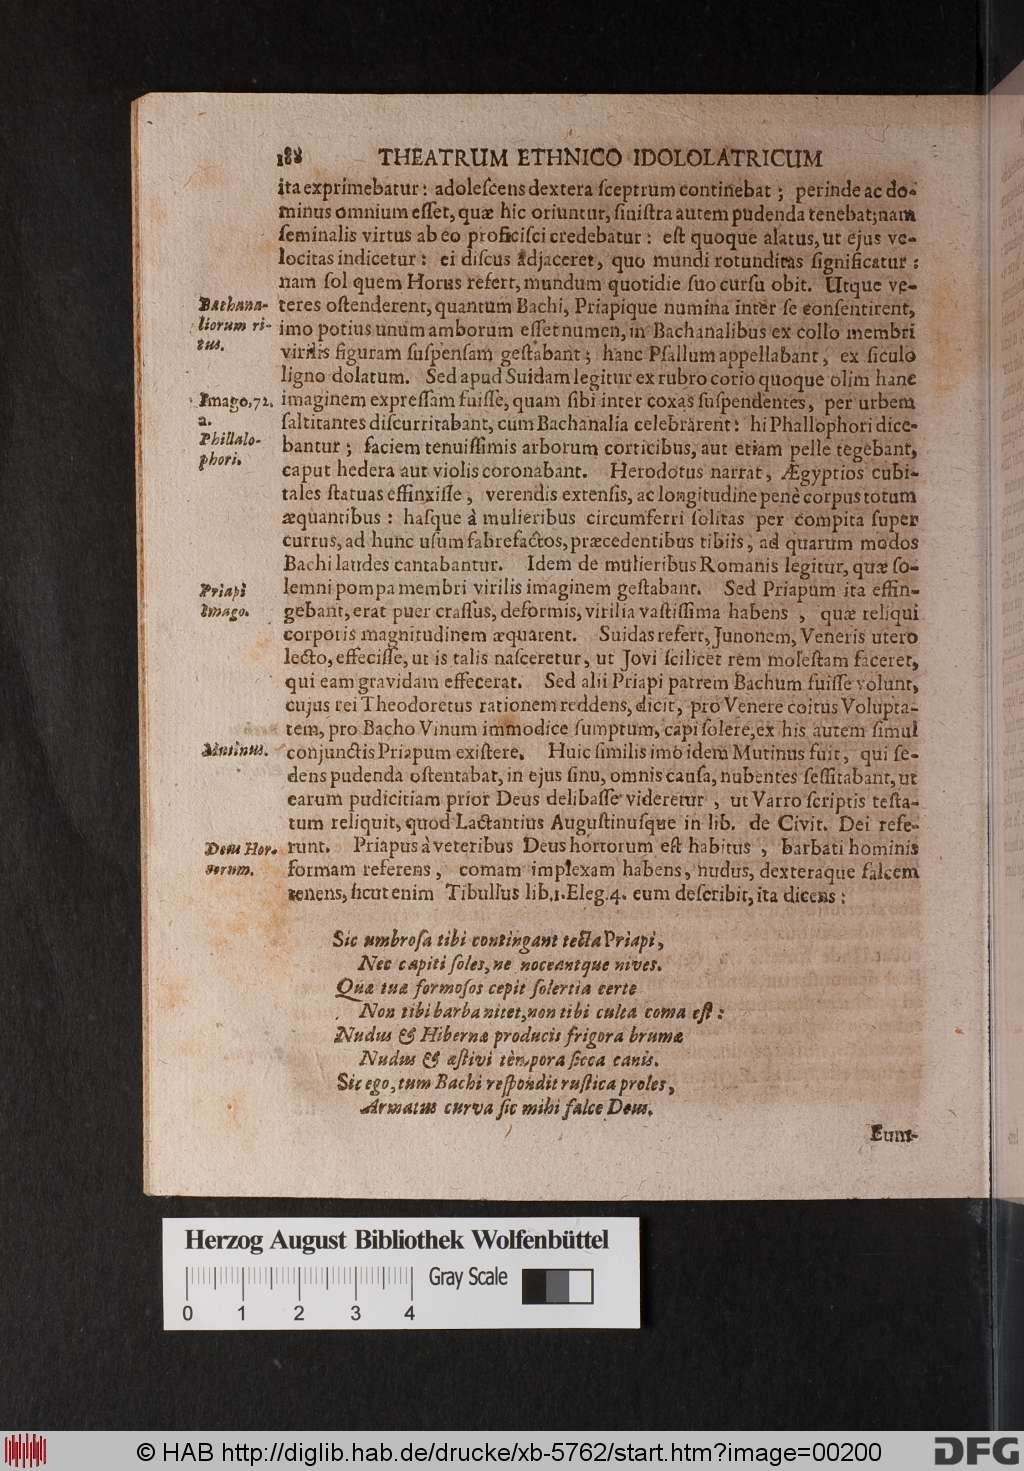 188 THEATRUM ETHNICO IDOLOLATRICUM
ita exprimebatur: adoleſcens dextera ſceptrum continebat; perinde ac do-
minus omnium eſſet, quæ hic oriuntur, ſiniſtra autem pudenda tenebat; nam
ſeminalis virtus ab eo proficiſci credebatur: eſt quoque alatus, ut ejus ve-
locitas indicetur: ei diſcus adjaceret, quo mundi rotunditas ſignificatur:
nam ſol quem Horus refert, mundum quotidie ſuo curſu obit. Utque ve-
Bachana-
liorum ri-
tus.
teres oſtenderent, quantum Bachi, Priapique numina inter ſe conſentirent,
imo potius unum amborum eſſet numen, in Bachanalibus ex collo membri
virilis figuram ſuſpenſam geſtabant; hanc Pſallum appellabant, ex ficulo
ligno dolatum. Sed apud Suidam legitur ex rubro corio quoque olim hanc
Imago, 72.
a.
Phillalo-
phori.
imaginem expreſſam fuiſſe, quam ſibi inter coxas ſuſpendentes, per urbem
ſaltitantes diſcurritabant, cum Bachanalia celebrarent: hi Phallophori dice-
bantur; faciem tenuiſſimis arborum corticibus, aut etiam pelle tegebant,
caput hedera aut violis coronabant. Herodotus narrat, Ægyptios cubi-
tales ſtatuas effinxiſſe, verendis extenſis, ac longitudine penè corpus totum
æquantibus: haſque à mulieribus circumferri ſolitas per compita ſuper
currus, ad hunc uſum fabrefactos, præcedentibus tibiis, ad quarum modos
Bachi laudes cantabantur. Idem de mulieribus Romanis legitur, quæ ſo-
Priapi
Imago.
lemni pompa membri virilis imaginem geſtabant. Sed Priapum ita effin-
gebant, erat puer craſſus, deformis, virilia vaſtiſſima habens, quæ reliqui
corporis magnitudinem æquarent. Suidas refert, Junonem, Veneris utero
lecto, effeciſſe, ut is talis naſceretur, ut Jovi ſcilicet rem moleſtam faceret,
qui eam gravidam effecerat. Sed alii Priapi patrem Bachum fuiſſe volunt,
cujus rei Theodoretus rationem reddens, dicit, pro Venere coitus Volupta-
tem, pro Bacho Vinum immodice ſumptum, capi ſolere, ex his autem ſimul
Mutinus.
conjunctis Priapum exiſtere. Huic ſimilis imò idem Mutinus fuit, qui ſe-
dens pudenda oſtentabat, in ejus ſinu, omnis cauſa, nubentes ſeſſitabant, ut
earum pudicitiam prior Deus delibaſſe videretur, ut Varro ſcriptis teſta-
tum reliquit, quod Lactantius Auguſtinuſque in lib. de Civit. Dei refe-
Deus Hor-
torum.
runt. Priapus à veteribus Deus hortorum eſt habitus, barbati hominis
formam referens, comam implexam habens, nudus, dexteraque falcem
tenens, ſicut enim Tibullus lib. 1. Eleg. 4. eum deſcribit, ita dicens:
Sic umbroſa tibi contingant tecta Priapi,
Nec capiti ſoles, ne noceantque nives.
Quæ tua formoſos cepit ſolertia certe
Non tibi barba nitet, non tibi culta coma eſt:
Nudus & Hibernæ producis frigora brumæ
Nudus & æſtivi tempora ſicca canis.
Sic ego, tum Bachi reſpondit ruſtica proles,
Armatus curva ſic mihi falce Deus.
Eunt-
Herzog August Bibliothek Wolfenbüttel
Gray Scale
0 1 2 3 4
© HAB http://diglib.hab.de/drucke/xb-5762/start.htm?image=00200
DFG